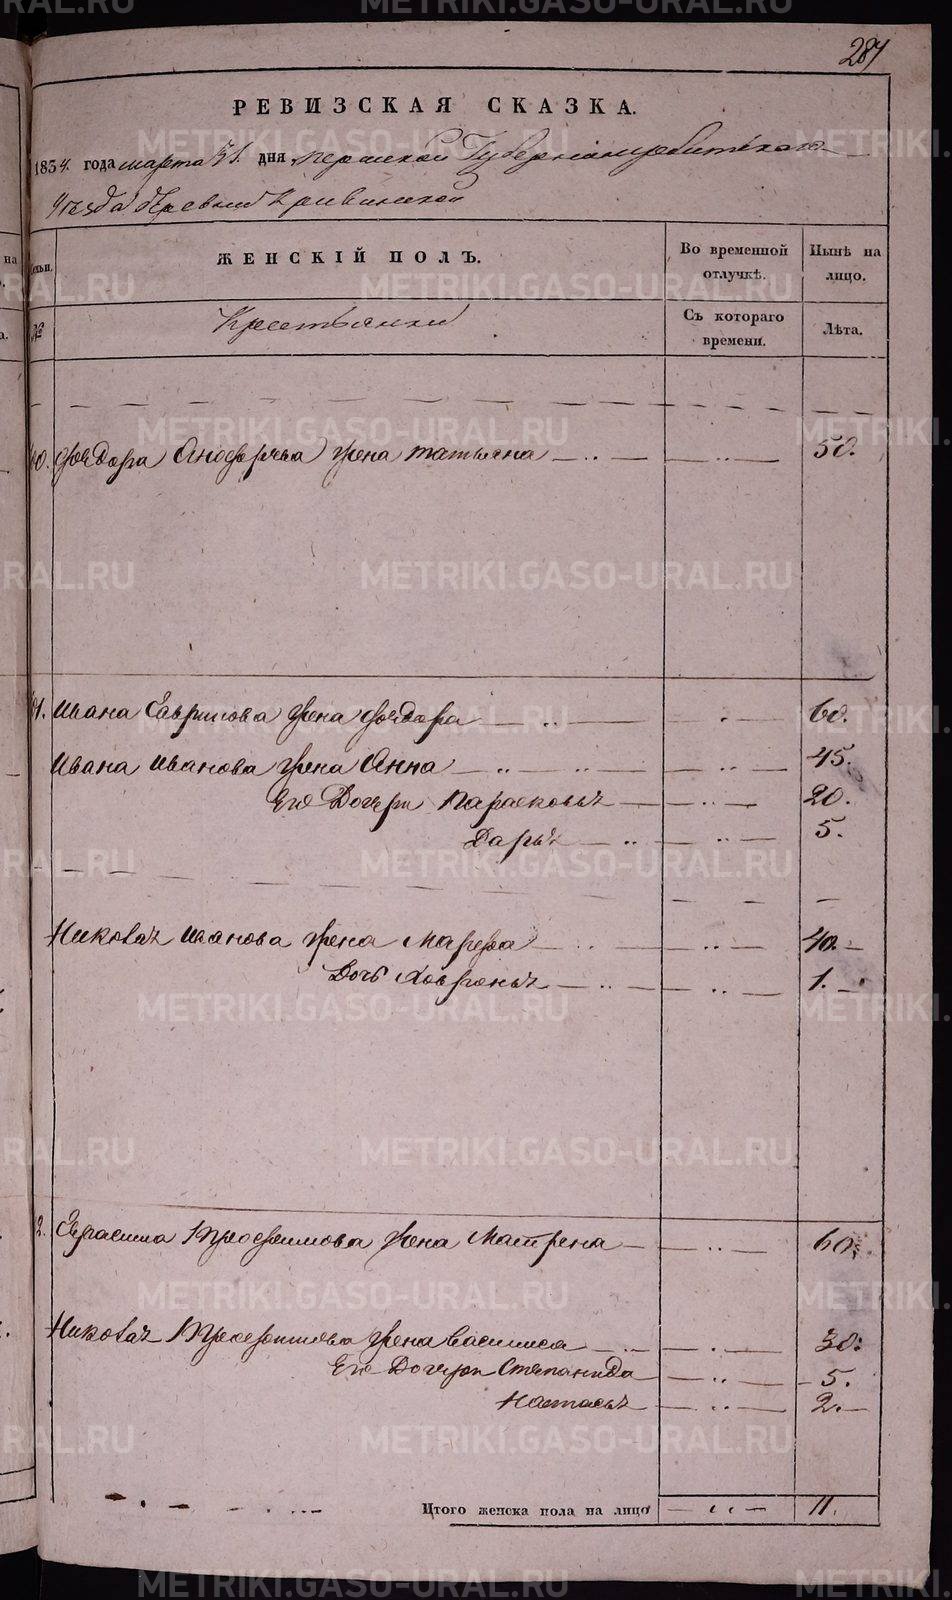 287
РЕВИЗСКАЯ СКАЗКА.
1834. года марта 31. дня, пермской Губернии ирбитскаго
уезда деревни Кривинской
ЖЕНСКІЙ ПОЛЪ.
Во временной отлучкѣ.
Нынѣ на лицо.
Крестьянки
Съ котораго времени.
Лѣта.
40. Фоедора Аноферьева жена татьяна 50.
41. ивана Гаврилова жена фоедора 60.
ивана иванова жена Анна 45.
Его Дочери Парасковья 20.
Дарья 5.
Николая иванова жена Марфа 40.
Дочь Хавронья 1.
2. Герасима жена Матрена 60.
Николая жена василиса 30.
Его Дочери Степанида 5.
Настасья 2.
Итого женска пола на лицо 11.
METRIKI.GASO-URAL.RU